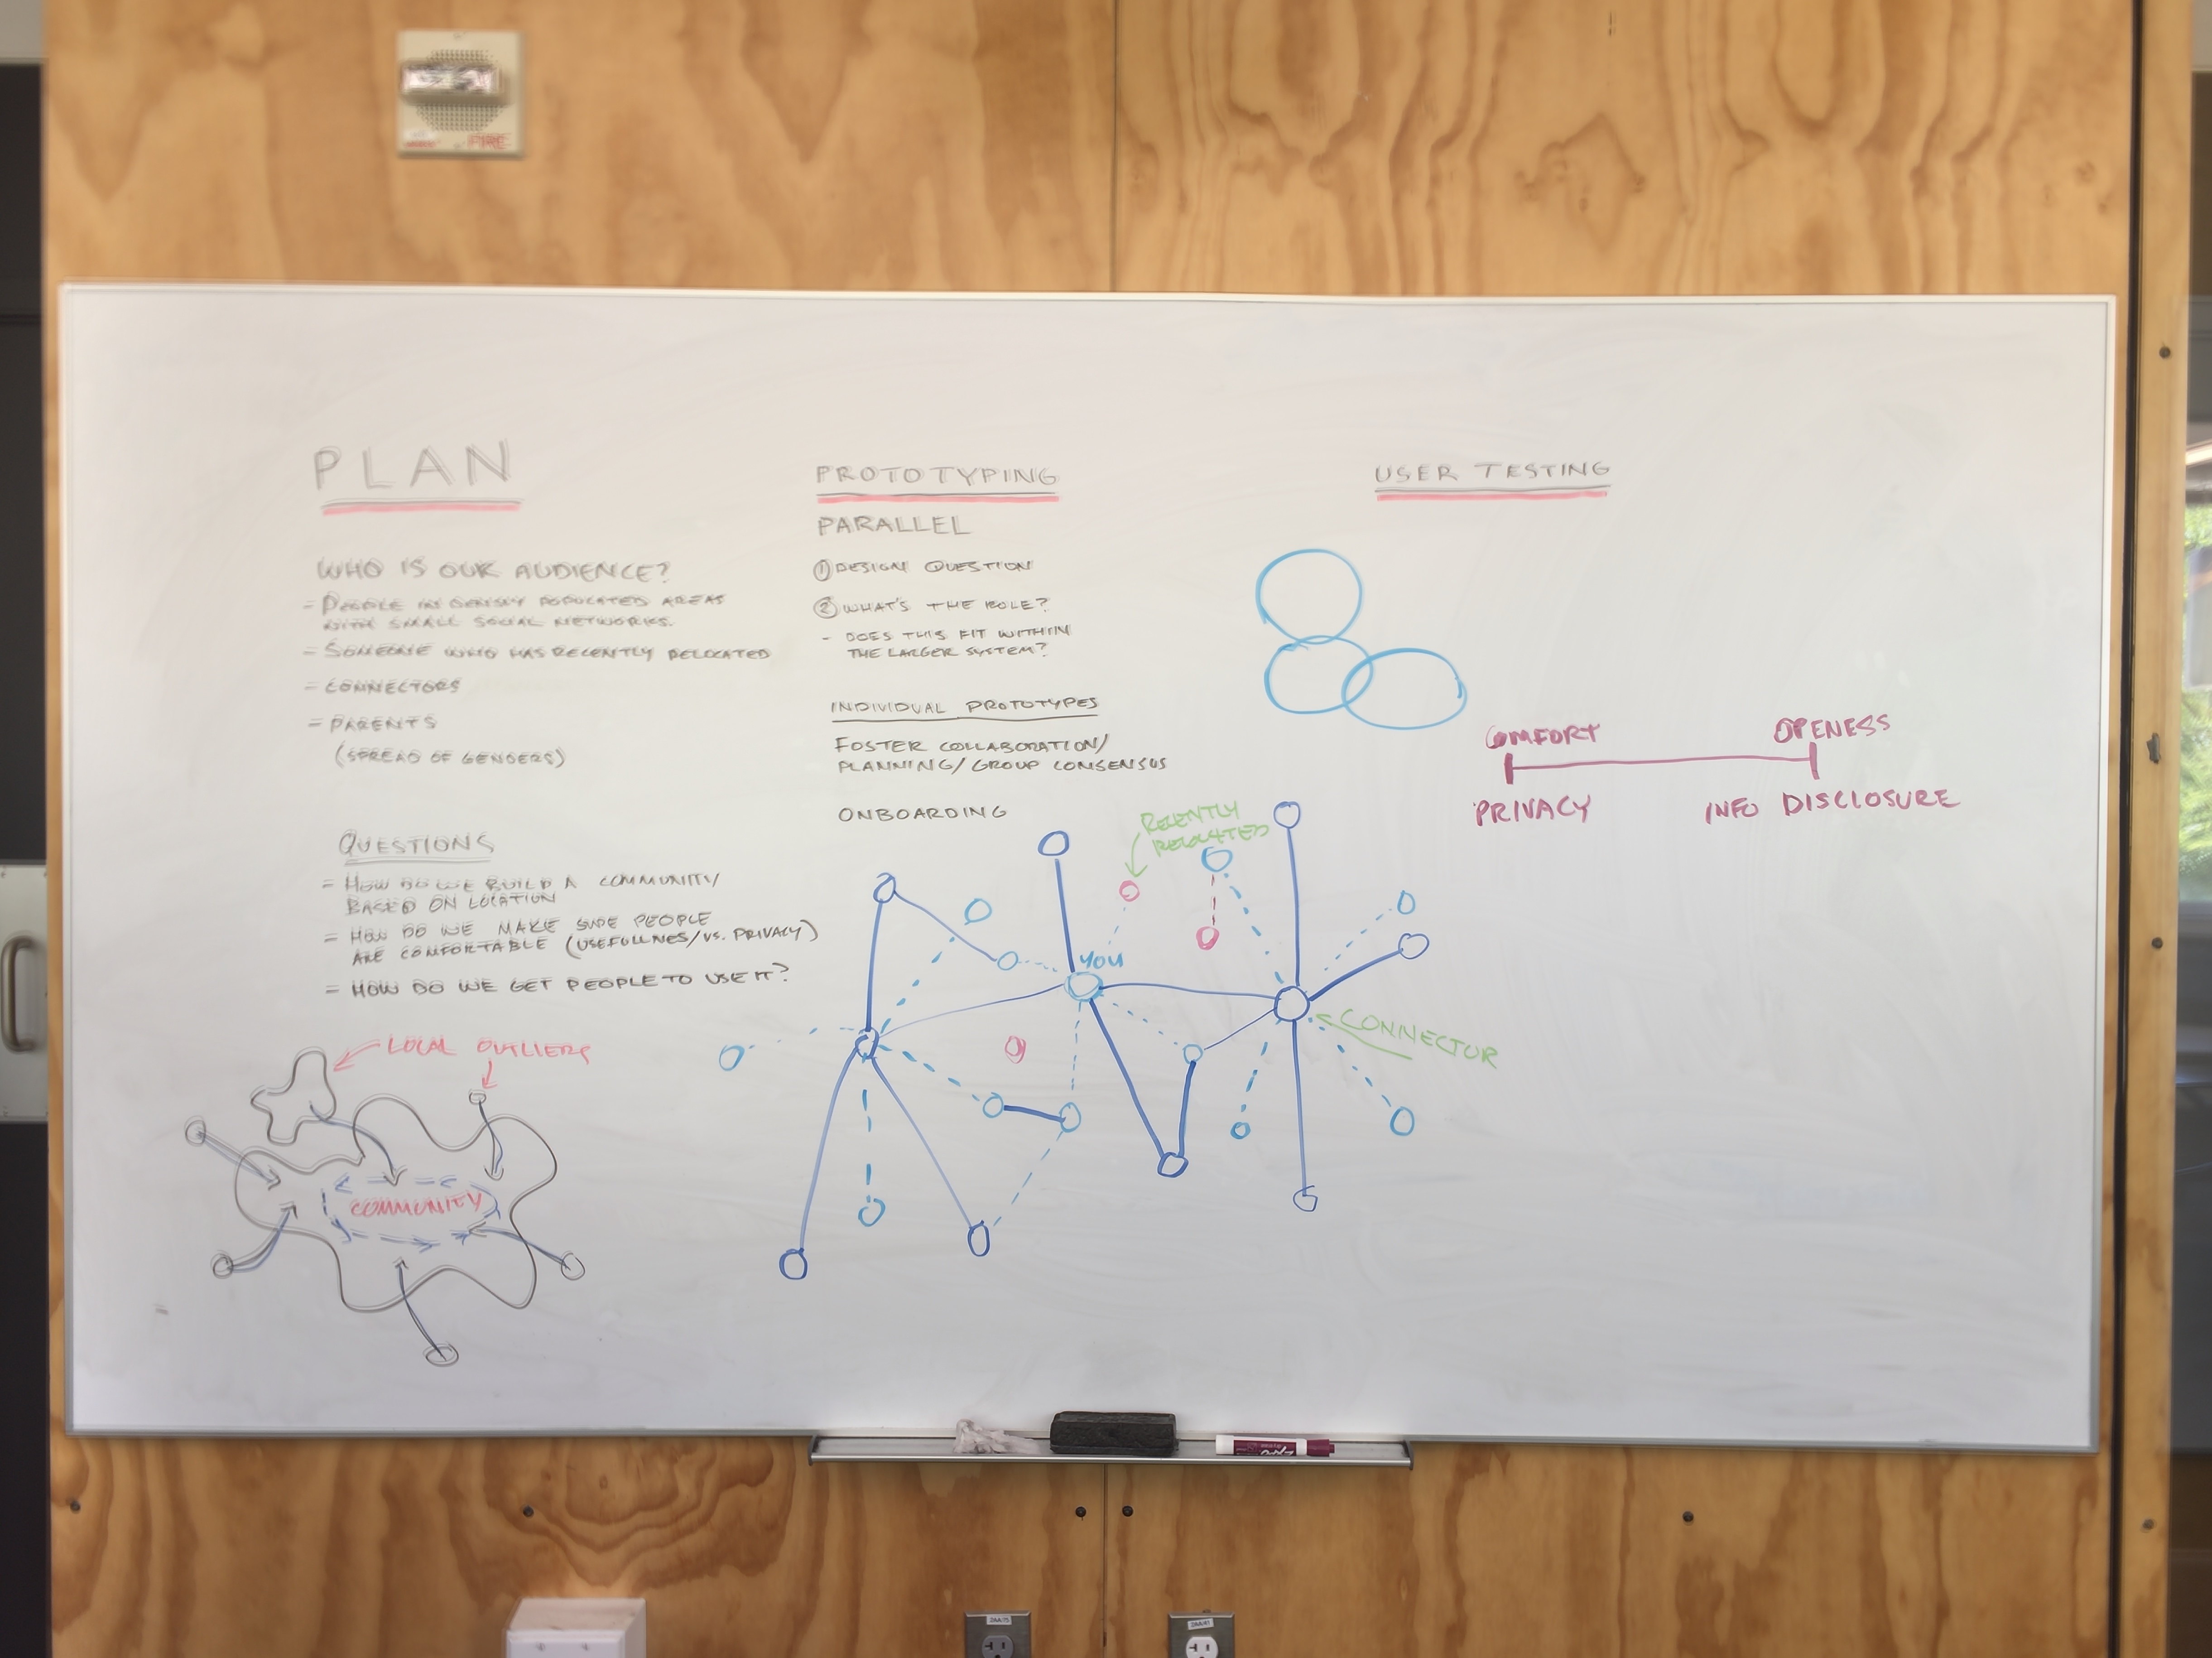 FIRE
PLAN
WHO IS OUR AUDIENCE?
- PEOPLE IN DENSLY POPULATED AREAS
WITH SMALL SOCIAL NETWORKS.
- SOMEONE WHO HAS RECENTLY RELOCATED
- CONNECTORS
- PARENTS
(SPREAD OF GENDERS)
QUESTIONS
- HOW DO WE BUILD A COMMUNITY
BASED ON LOCATION
- HOW DO WE MAKE SURE PEOPLE
ARE COMFORTABLE (USEFULLNES/VS. PRIVACY)
- HOW DO WE GET PEOPLE TO USE IT?
LOCAL OUTLIERS
COMMUNITY
PROTOTYPING
PARALLEL
① DESIGN QUESTION
② WHAT'S THE ROLE?
- DOES THIS FIT WITHIN
THE LARGER SYSTEM?
INDIVIDUAL PROTOTYPES
FOSTER COLLABORATION/
PLANNING/GROUP CONSENSUS
ONBOARDING
RECENTLY
RELOCATED
YOU
CONNECTOR
USER TESTING
COMFORT
OPENESS
PRIVACY
INFO DISCLOSURE